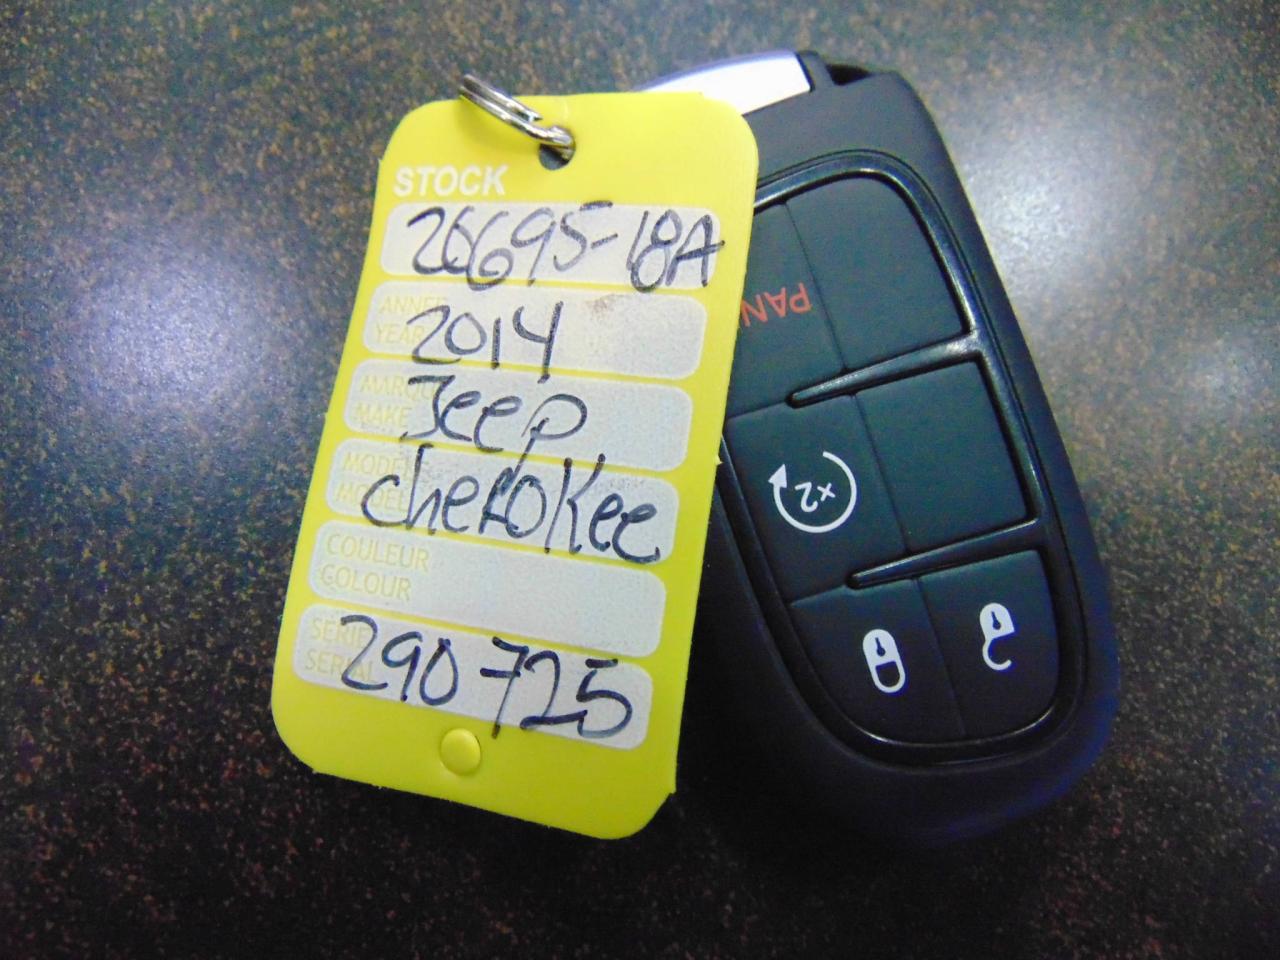 STOCK
26695-18A
ANNEE
YEAR
2014
MARQUE
MAKE
Jeep
MODEL
cherokee
COULEUR
COLOUR
SERIE
SERIAL
290725
PAN
x2